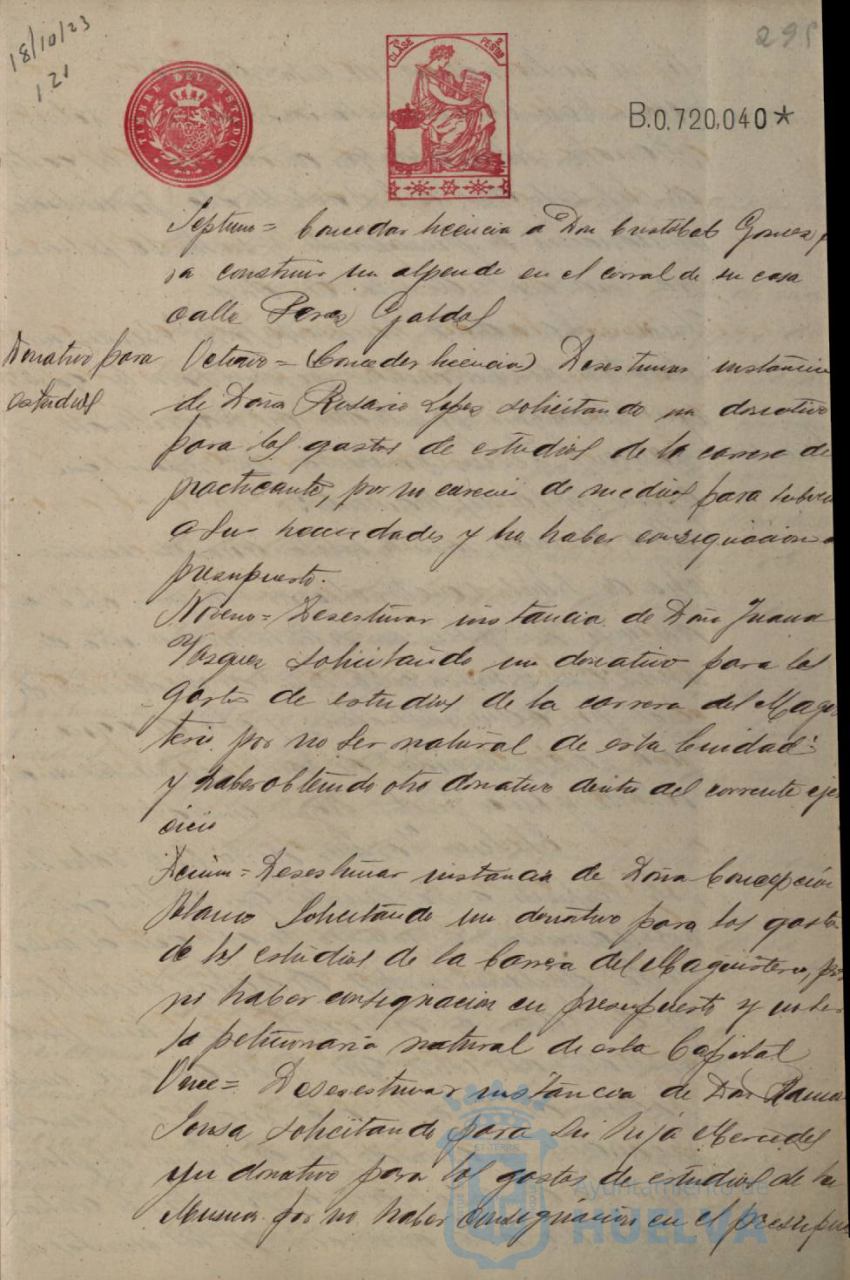 18/10/23
121
295
TIMBRE DEL ESTADO
CLASE 2 PESTAS
B.0.720,040*
Septimo = Conceder licencia a Don Cristobal Gomez p
ra construir un alpende en el corral de su casa
calle Perez Galdos
Donativo para
estudios
Octavo = (Conceder licencia) Desestimar instancia
de Doña Rosario Lopez solicitando un donativo
para los gastos de estudios de la carrera de
practicante, por no carecer de medios para
a sus necesidades y no haber consignacion
presupuesto.
Noveno = Desestimar instancia de Doña Juana
Vazquez solicitando un donativo para los
gastos de estudios de la carrera del Magis
terio por no ser natural de esta Ciudad
y haber obtenido otro donativo dentro del corriente ejer
cicio
Decimo = Desestimar instancia de Doña Concepción
Blanco Solicitando un donativo para los gastos
de los estudios de la Carrera del Magisterio, por
no haber consignacion en presupuesto y no ser
la peticionaria natural de esta Capital
Once = Desesestimar instancia de Don
Sousa solicitando para su hija Mercedes
un donativo para los gastos de estudios de la
Musica por no haber consignación en el presupu
Ayuntamiento de
HUELVA